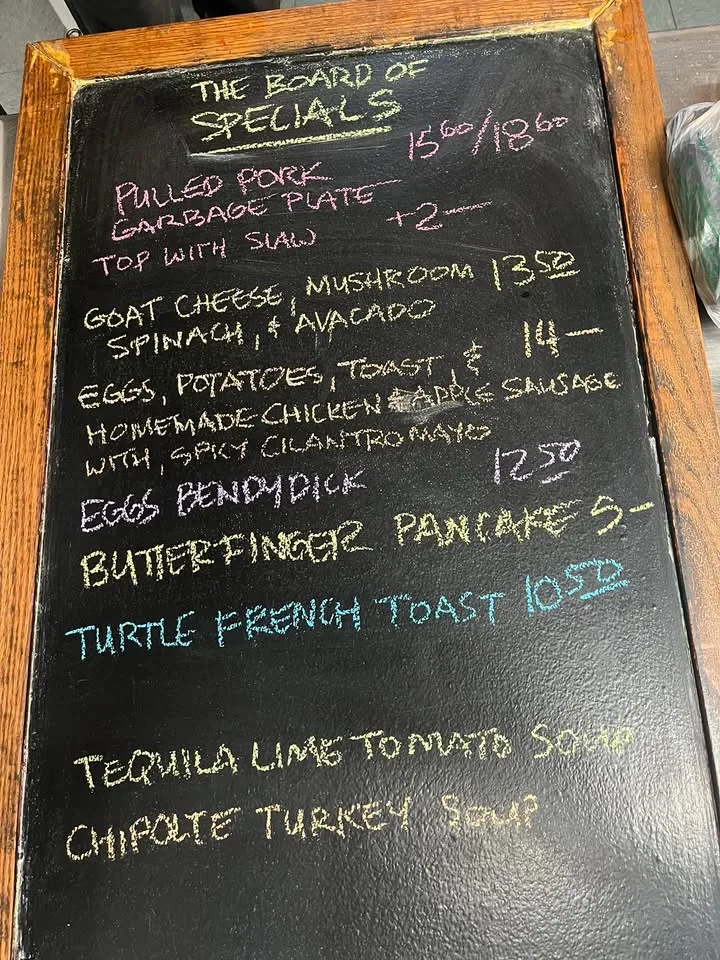 THE BOARD OF
SPECIALS
15⁶⁰/18⁶⁰
PULLED PORK
GARBAGE PLATE
TOP WITH SLAW +2—
GOAT CHEESE, MUSHROOM 13⁵⁰
SPINACH, & AVACADO
14—
EGGS, POTATOES, TOAST, &
HOMEMADE CHICKEN & APPLE SAUSAGE
WITH, SPICY CILANTRO MAYO
EGGS BENDYDICK 12⁵⁰
BUTTERFINGER PANCAKE 5—
TURTLE FRENCH TOAST 10⁵⁰
TEQUILA LIME TOMATO SOUP
CHIPOLTE TURKEY SOUP